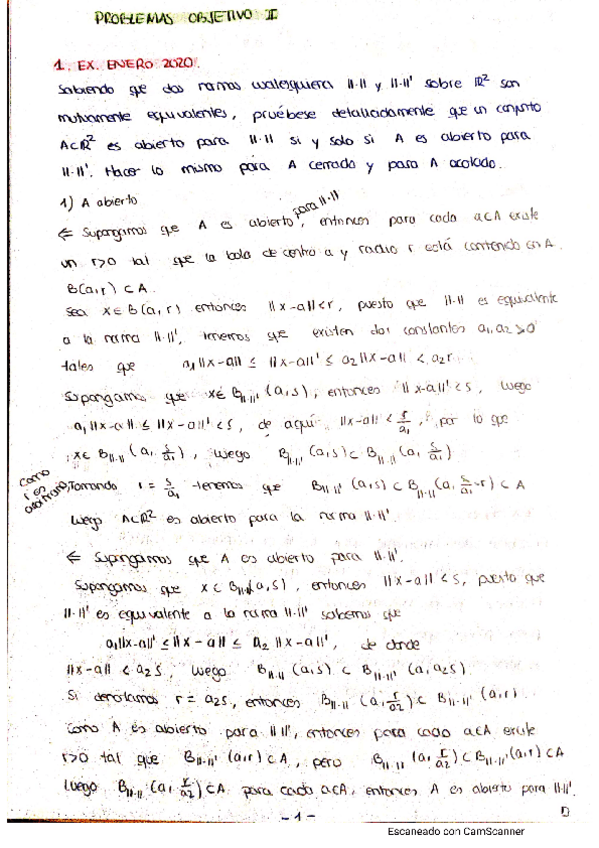 PROBLEMAS OBJETIVO II
1. EX. ENERO 2020.
Sabiendo que dos normas cualesquiera ||·|| y ||·||' sobre ℝ² son
mutuamente equivalentes, pruébese detalladamente que un conjunto
A⊂ℝ² es abierto para ||·|| si y solo si A es abierto para
||·||'. Hacer lo mismo para A cerrado y para A acotado.
1) A abierto
⇐ Supongamos que A es abierto para ||·||, entonces para cada a∈A existe
un r>0 tal que la bola de centro a y radio r está contenida en A.
B(a,r) ⊂ A.
Sea x∈B(a,r) entonces ||x-a||<r, puesto que ||·|| es equivalente
a la norma ||·||', tenemos que existen dos constantes a₁,a₂>0
tales que a₁||x-a|| ≤ ||x-a||' ≤ a₂||x-a|| < a₂r
Supongamos que x∈B||·||'(a,s), entonces ||x-a||'<s, luego
a₁||x-a|| ≤ ||x-a||' < s, de aquí ||x-a|| < s/a₁, por lo que
x∈B||·||(a, s/a₁), luego B||·||'(a,s) ⊂ B||·||(a, s/a₁)
como r es arbitrario, Tomando r = s/a₁ tenemos que B||·||'(a,s) ⊂ B||·||(a, s/a₁=r) ⊂ A
luego A⊂ℝ² es abierto para la norma ||·||'.
⇐ Supongamos que A es abierto para ||·||'.
Supongamos que x∈B||·||(a,s), entonces ||x-a||<s, puesto que
||·||' es equivalente a la norma ||·|| sabemos que
a₁||x-a||' ≤ ||x-a|| ≤ a₂||x-a||', de donde
||x-a|| < a₂s, luego B||·||(a,s) ⊂ B||·||'(a,a₂s)
Si denotamos r = a₂s, entonces B||·||(a, r/a₂) ⊂ B||·||'(a,r).
Como A es abierto para ||·||', entonces para cada a∈A existe
r>0 tal que B||·||'(a,r) ⊂ A, pero B||·||(a, r/a₂) ⊂ B||·||'(a,r) ⊂ A
Luego B||·||(a, r/a₂) ⊂ A para cada a∈A, entonces A es abierto para ||·||'.
-1-
Escaneado con CamScanner